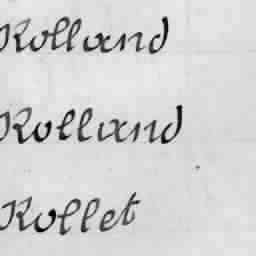 Rolland
Rolland
Rollet